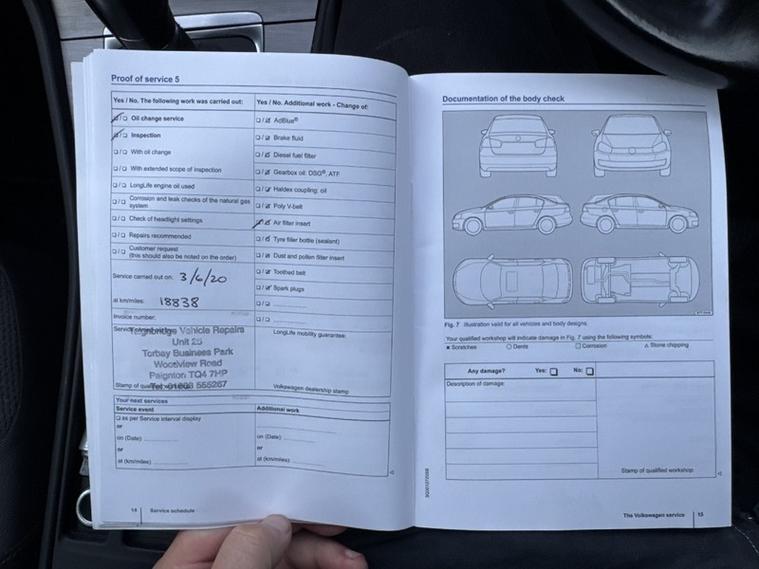 Proof of service 5
Yes / No. The following work was carried out:
Oil change service
Inspection
With oil change
With extended scope of inspection
LongLife engine oil used
Corrosion and leak checks of the natural gas
system
Check of headlight settings
Repairs recommended
Customer request
(this should also be noted on the order)
Service carried out on: 3/6/20
at km/miles: 18838
Invoice number:
Vehicle Repairs
Unit 25
Torbay Business Park
Woodview Road
Paignton TQ4 7HP
Stamp of
Yes / No. Additional work - Change of:
AdBlue®
Brake fluid
Diesel fuel filter
Gearbox oil: DSG®, ATF
Haldex coupling: oil
Poly V-belt
Air filter insert
Tyre filler bottle (sealant)
Dust and pollen filter insert
Toothed belt
Spark plugs
LongLife mobility guarantee:
Volkswagen dealership stamp
Your next services
Service event
as per Service interval display
or
on (Date)
or
at (km/miles)
Additional work
on (Date)
or
at (km/miles)
14 Service schedule
Documentation of the body check
Fig. 7 Illustration valid for all vehicles and body designs.
Your qualified workshop will indicate damage in Fig. 7 using the following symbols:
Scratches Dents Corrosion Stone chipping
Any damage? Yes: No:
Description of damage:
Stamp of qualified workshop
The Volkswagen service 15